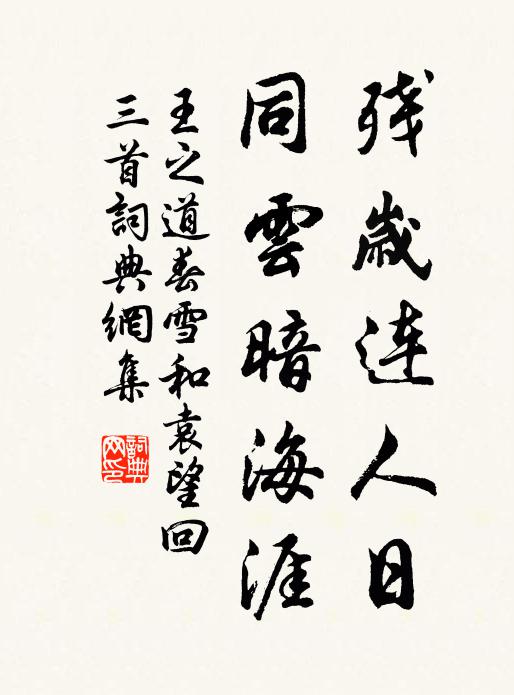 残歲连人日
同雲暗海涯
王之道春雪和袁望回
三首詞典網集
詞典网印